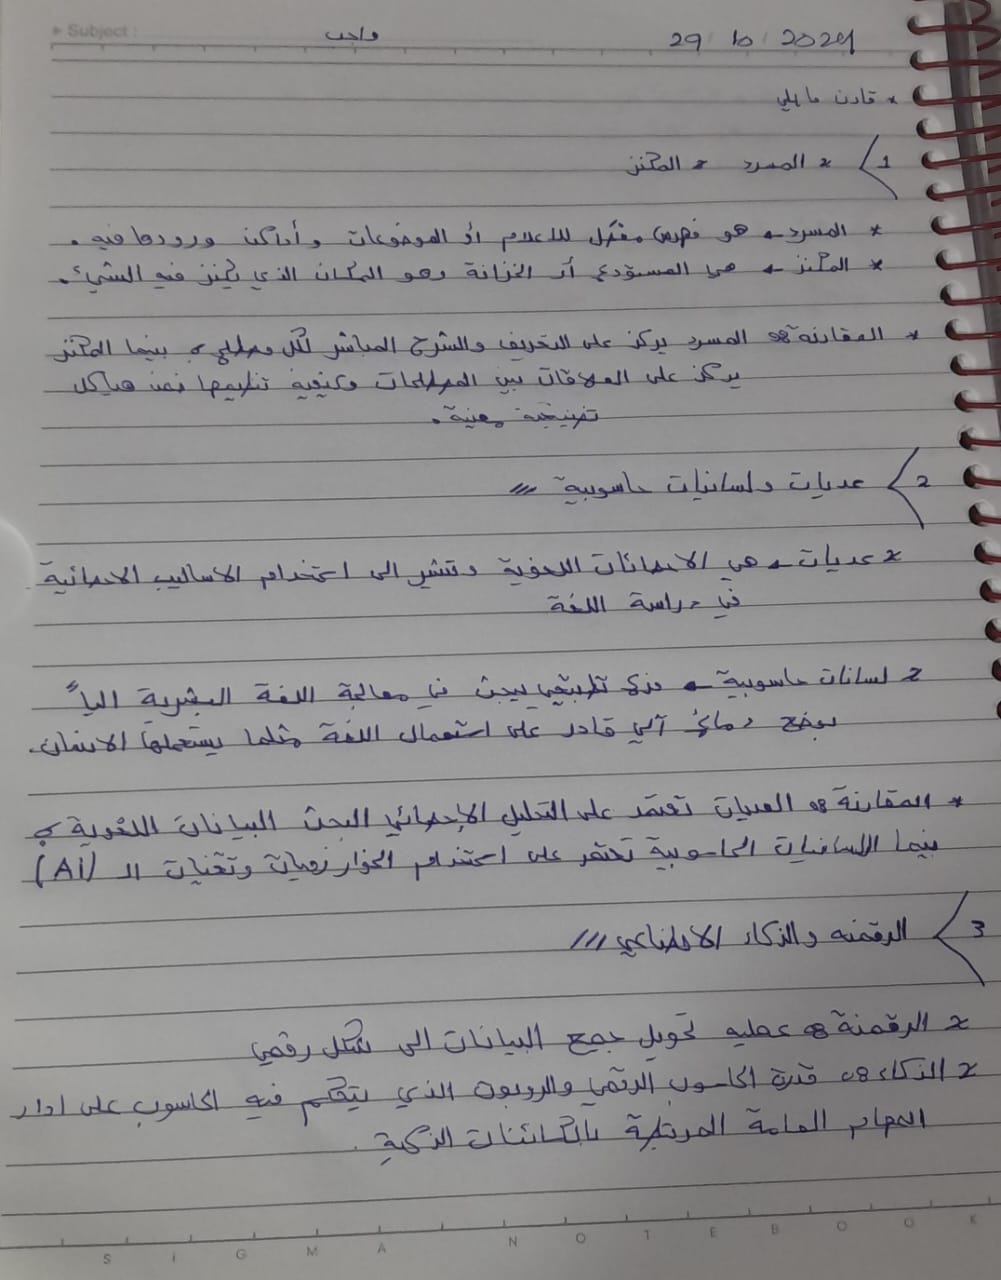 Subject:
واجب
29 / 10 / 2024
* قارن ما يلي
1 * المسرد * المكنز
* المسرد - هو فهرس مفصل للاعلام أو الموضوعات وأماكن ورودها فيه .
* المكنز - هي المستودع أو الخزانة وهو المكان الذي يكنز فيه الشيء .
* المقارنة 8 المسرد يركز على التعريف والشرح المباشر لكل مصطلح ، بينما المكنز
يركز على العلاقات بين المصطلحات وكيفية تنظيمها ضمن هياكل
معينة .
2 عديات ولسانيات حاسوبية ///
* عديات - هي الاحصائات اللغوية وتشير الى استخدام الاساليب الاحصائية
في دراسة اللغة
* لسانات حاسوبية - فرع تطبيقي يبحث في معالجة اللغة البشرية الياً
بوضع دماغ آلي قادر على استعمال اللغة مثلما يستعملها الانسان .
* المقارنة 8 العديات تعتمد على التحليل الإحصائي البيانات اللغوية ،
بينما اللسانيات الحاسوبية تعتمد على استخدام الخوارزميات وتقنيات الـ (AI)
3 الرقمنه والذكاء الاصطناعي ///
* الرقمنة 8 عمليه تحويل جمع البيانات الى شكل رقمي
* الذكاء 8 قدرة الحاسوب الرقمي والروبوت الذي يتحكم فيه الحاسوب على اداء
المهام العامة المرتبطة بالكائنات الذكية .
SIGMA NOTEBOOK